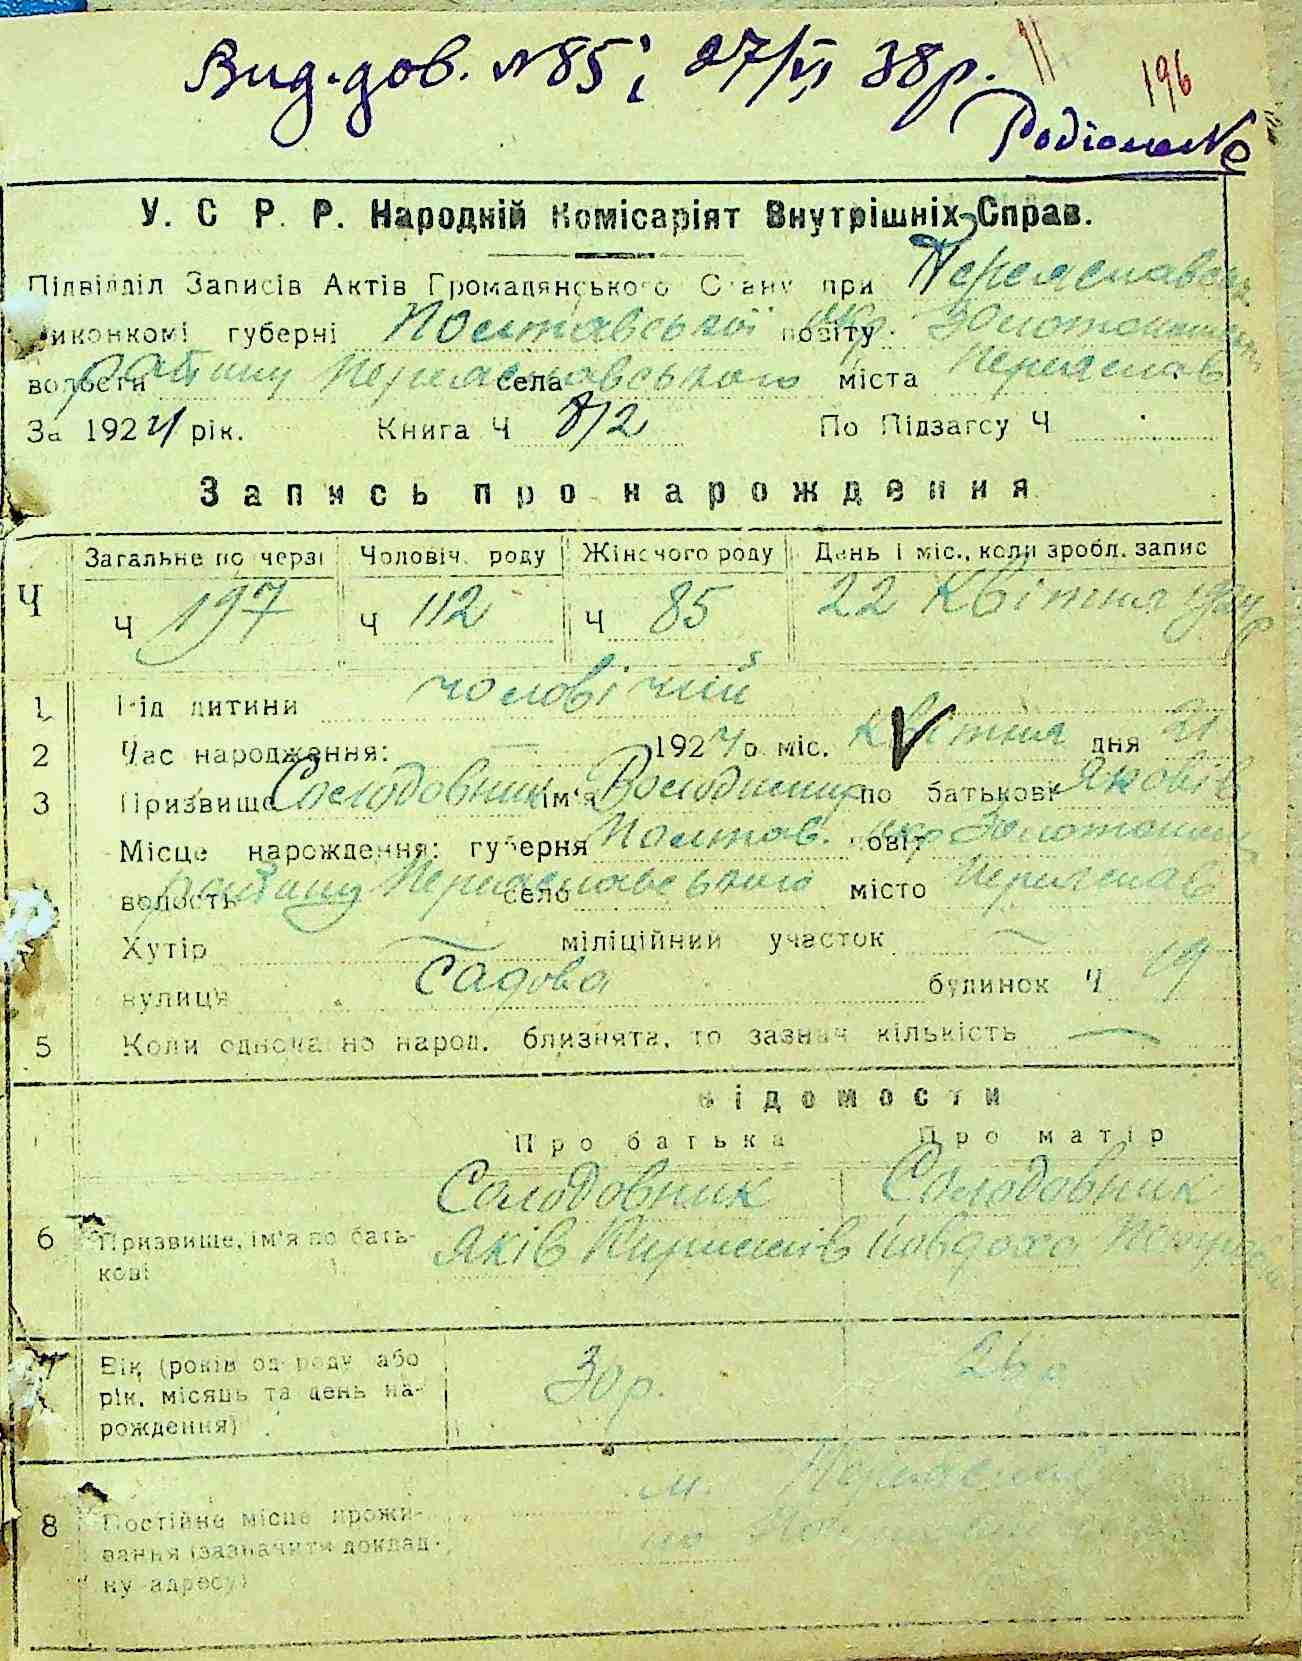 Вид. дов. №85; 27/VI 38р. 11 196
Родіоненко
У. С Р. Р. Народній Комісаріят Внутрішніх Справ.
Підвідділ Записів Актів Громадянського Стану при Переяславськ
виконкомі губерні Полтавської повіту окр Золотоніської
волости району Переяславського села міста Переяслав
За 1924 рік. Книга Ч 8/2 По Підзагсу Ч
Запись про нарождення
Загальне по черзі Чоловіч. роду Жіночого роду День і міс., коли зробл. запис
Ч Ч 197 Ч 112 Ч 85 22 Квітня 1924 р
1 Рід дитини чоловічий
2 Час народження: — 1924 р. міс. квітня дня 21
3 Призвище Солодовник ім'я Володимир по батькові Яковів
Місце нарождення: губерня Полтав. повіт окр Золотоніськ
волость району Переяславського село місто Переяслав
Хутір — міліційний участок —
вулиця Садова будинок Ч 19
5 Коли одночасно народ. близнята, то зазнач кількість —
Відомости
Про батька Про матір
Солодовник Солодовник
6 Призвище, ім'я по бать- Яків Кирилів Повдоха Петрова
кові
7 Вік (років од роду або 30 р. 26 р
рік, місяць та день на-
рождення)
м. Переяслав
8 Постійне місце прожи-
вання (зазначити доклад- по
ну адресу)